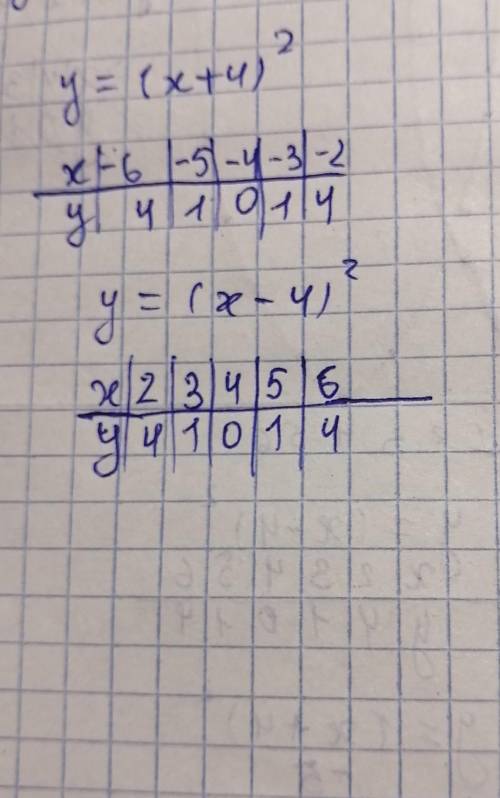 y = (x+4)²
x | -6 | -5 | -4 | -3 | -2
y | 4 | 1 | 0 | 1 | 4
y = (x - 4)²
x | 2 | 3 | 4 | 5 | 6
y | 4 | 1 | 0 | 1 | 4